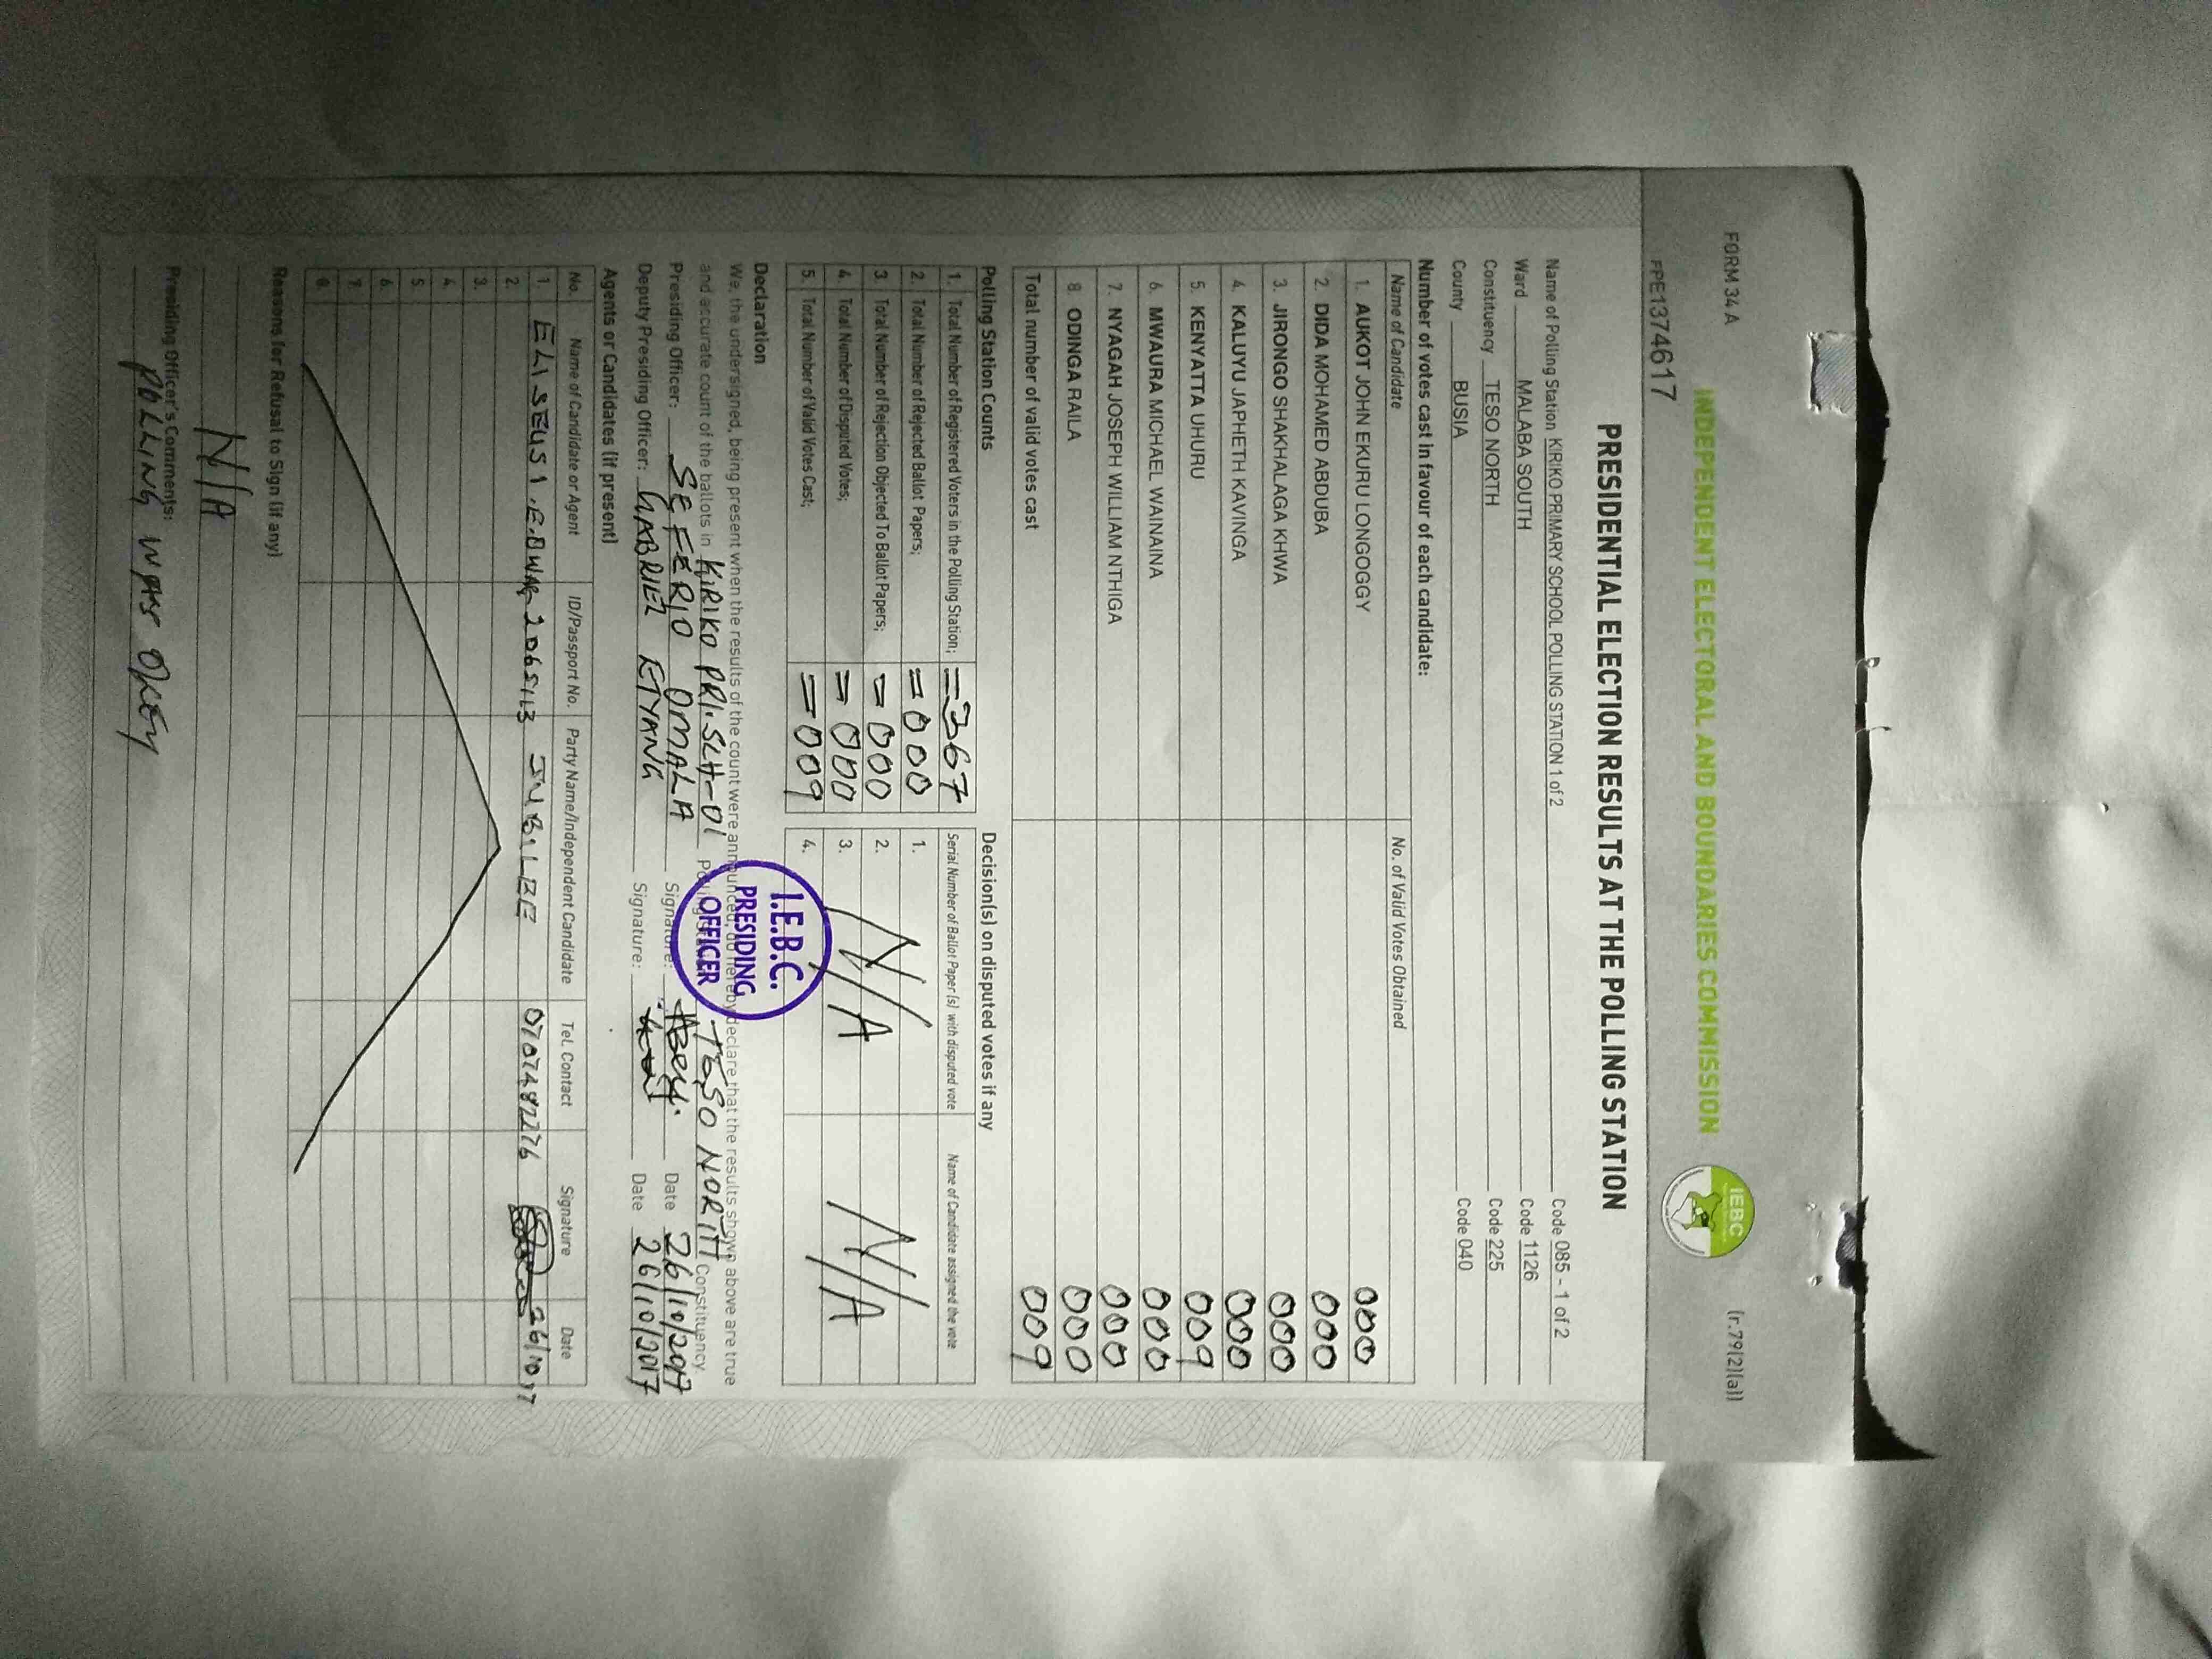 FORM 34 A
(r.79(2)(a))
INDEPENDENT ELECTORAL AND BOUNDARIES COMMISSION
IEBC
FPE1374617
PRESIDENTIAL ELECTION RESULTS AT THE POLLING STATION
Name of Polling Station KIRIKO PRIMARY SCHOOL POLLING STATION 1 of 2 Code 085 - 1 of 2
Ward MALABA SOUTH Code 1126
Constituency TESO NORTH Code 225
County BUSIA Code 040
Number of votes cast in favour of each candidate:
Name of Candidate No. of Valid Votes Obtained
1. AUKOT JOHN EKURU LONGOGGY 000
2. DIDA MOHAMED ABDUBA 000
3. JIRONGO SHAKHALAGA KHWA 000
4. KALUYU JAPHETH KAVINGA 000
5. KENYATTA UHURU 009
6. MWAURA MICHAEL WAINAINA 000
7. NYAGAH JOSEPH WILLIAM NTHIGA 000
8. ODINGA RAILA 000
Total number of valid votes cast 009
Polling Station Counts
1. Total Number of Registered Voters in the Polling Station; =367
2. Total Number of Rejected Ballot Papers; =000
3. Total Number of Rejection Objected To Ballot Papers; =000
4. Total Number of Disputed Votes; =000
5. Total Number of Valid Votes Cast; =009
Decision(s) on disputed votes if any
Serial Number of Ballot Paper (s) with disputed vote Name of Candidate assigned the vote
1.
2.
3.
4.
N/A N/A
Declaration
We, the undersigned, being present when the results of the count were announced, do hereby declare that the results shown above are true
and accurate count of the ballots in KIRIKO PRI. SCH-01 Polling Station TESO NORTH Constituency.
Presiding Officer: SEFERIO OMALA Signature: Date 26/10/2017
Deputy Presiding Officer: GABRIEL ETYANG Signature: Date 26/10/2017
I.E.B.C.
PRESIDING
OFFICER
Agents or Candidates (if present)
No. Name of Candidate or Agent ID/Passport No. Party Name/Independent Candidate Tel. Contact Signature Date
1. ELISEUS 2065113 JUBILEE 0707482276 26/10/17
2.
3.
4.
5.
6.
7.
8.
Reasons for Refusal to Sign (if any)
N/A
Presiding Officer's Comments:
POLLING WAS OKEY